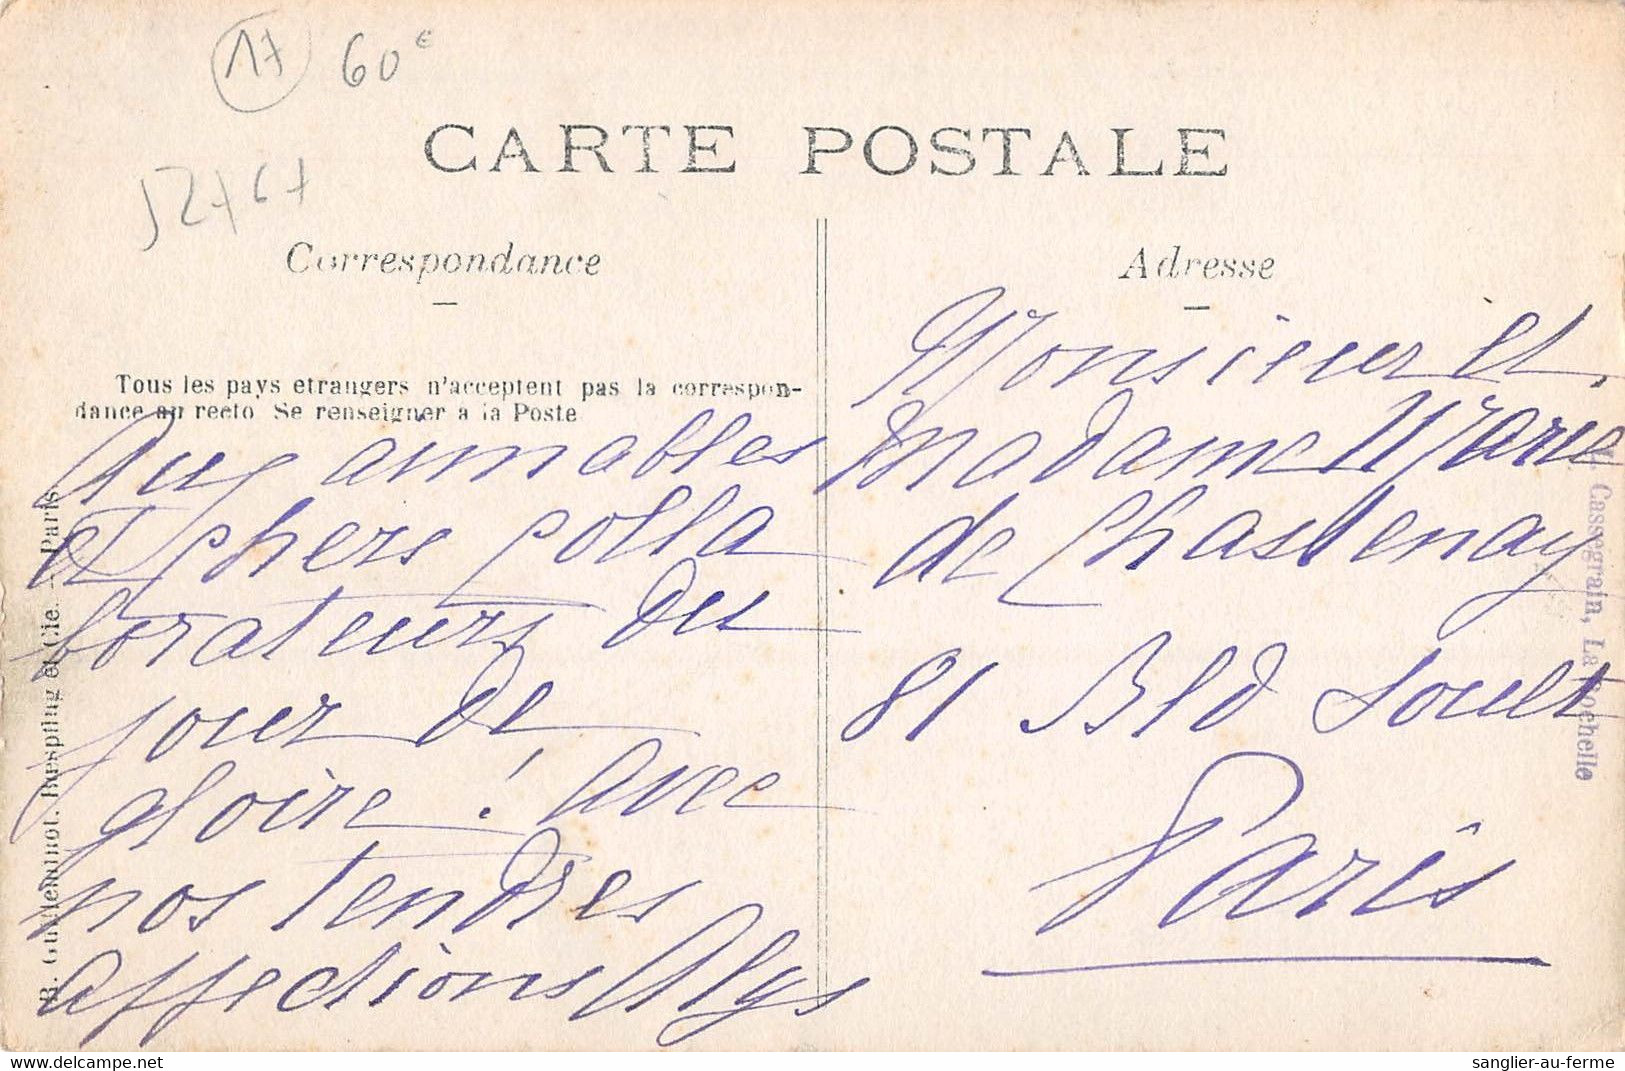 17 60€
52767
CARTE POSTALE
Correspondance
Tous les pays etrangers n'acceptent pas la correspon-
dance au recto Se renseigner a la Poste
Aux aimables
et chers colla
borateurs du
jour de
gloire ! Avec
nos tendres
affections Alys
R. Guilleminot, Bœspflug et Cie. - Paris
Adresse
Monsieur et
Madame Marie
de Chastenay
81 Bld Soult
Paris
Cassegrain, La Rochelle
sanglier-au-ferme